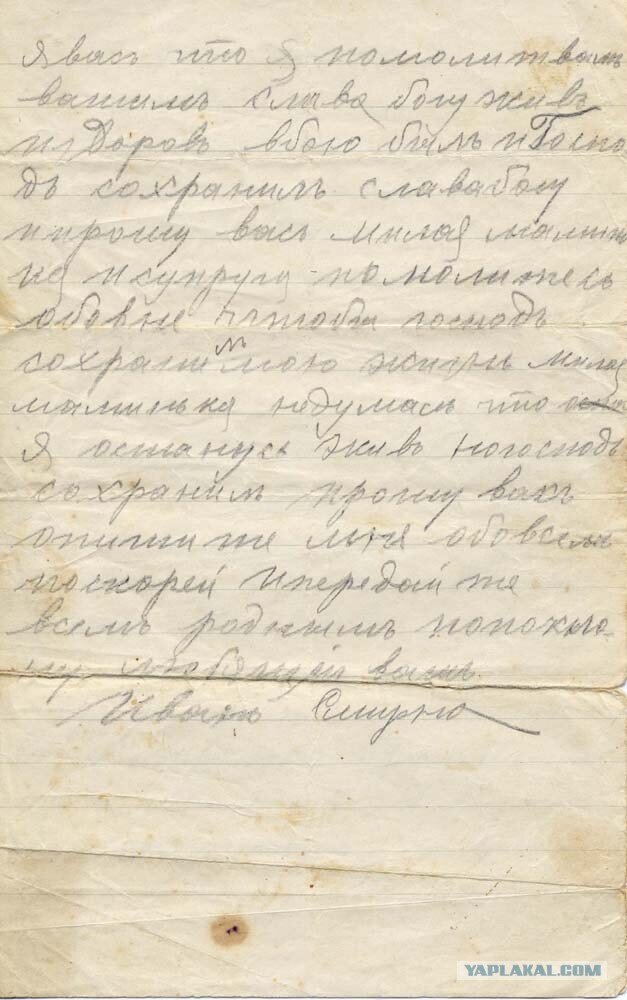 я вас что я помолитвам
вашимъ слава богу живъ
издоровъ вбою былъ и Госпо
дь сохранилъ славабогу
ипрошу васъ милая маминь
ка исупруга помолитесь
обовне чтобы господь
сохранилъ мою жизнь милая
маминька недумаеь что
я останусь живъ ногосподь
сохранилъ прошу васъ
опишите мня обовсемъ
поскорей ипередайте
всемъ роднымъ попокло
ну любящей вашъ
Иванъ Смирно
YAPLAKAL.COM